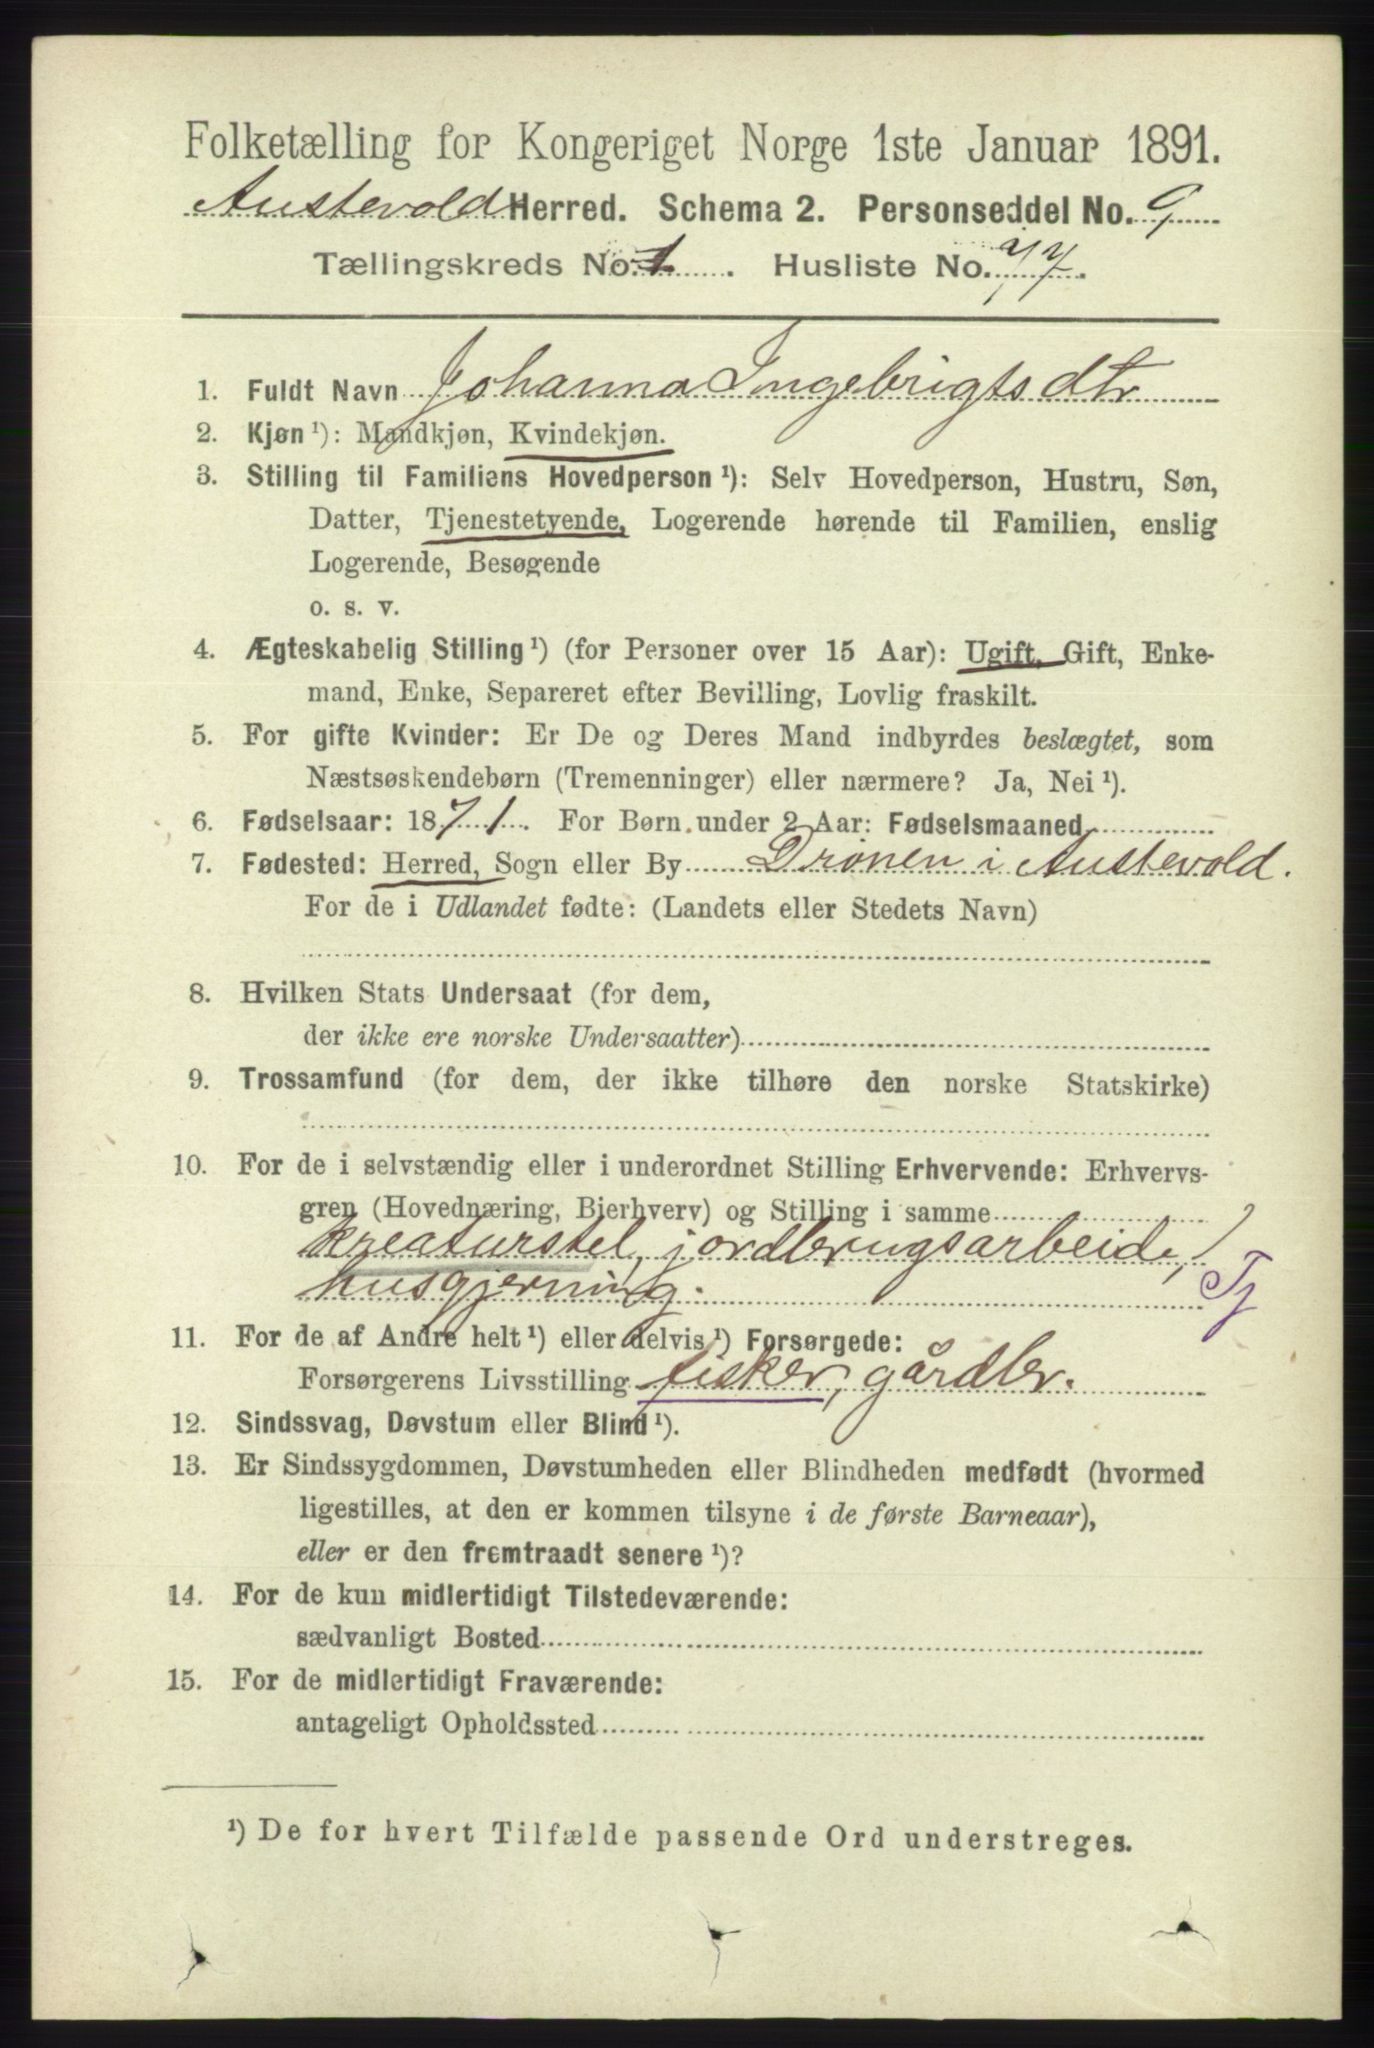 Folketælling for Kongeriget Norge 1ste Januar 1891.
Austevold Herred. Schema 2. Personseddel No. 9
Tællingskreds No. 1. Husliste No. 77.
1. Fuldt Navn Johanna Ingebrigtsdtr
2. Kjøn ¹): Mandkjøn, Kvindekjøn.
3. Stilling til Familiens Hovedperson ¹): Selv Hovedperson, Hustru, Søn,
Datter, Tjenestetyende, Logerende hørende til Familien, enslig
Logerende, Besøgende
o. s. v.
4. Ægteskabelig Stilling ¹) (for Personer over 15 Aar): Ugift, Gift, Enke-
mand, Enke, Separeret efter Bevilling, Lovlig fraskilt.
5. For gifte Kvinder: Er De og Deres Mand indbyrdes beslægtet, som
Næstsøskendebørn (Tremenninger) eller nærmere? Ja, Nei ¹).
6. Fødselsaar: 1871. For Børn under 2 Aar: Fødselsmaaned
7. Fødested: Herred, Sogn eller By Drønen i Austevold.
For de i Udlandet fødte: (Landets eller Stedets Navn)
8. Hvilken Stats Undersaat (for dem,
der ikke ere norske Undersaatter)
9. Trossamfund (for dem, der ikke tilhøre den norske Statskirke)
10. For de i selvstændig eller i underordnet Stilling Erhvervende: Erhvervs-
gren (Hovednæring, Bierhverv) og Stilling i samme
kreaturstel, jordbrugsarbeide,
husgjerning. Tj
11. For de af Andre helt ¹) eller delvis ¹) Forsørgede:
Forsørgerens Livsstilling fisker, gårdbr.
12. Sindssvag, Døvstum eller Blind ¹).
13. Er Sindssygdommen, Døvstumheden eller Blindheden medfødt (hvormed
ligestilles, at den er kommen tilsyne i de første Barneaar),
eller er den fremtraadt senere ¹)?
14. For de kun midlertidigt Tilstedeværende:
sædvanligt Bosted
15. For de midlertidigt Fraværende:
antageligt Opholdssted
¹) De for hvert Tilfælde passende Ord understreges.